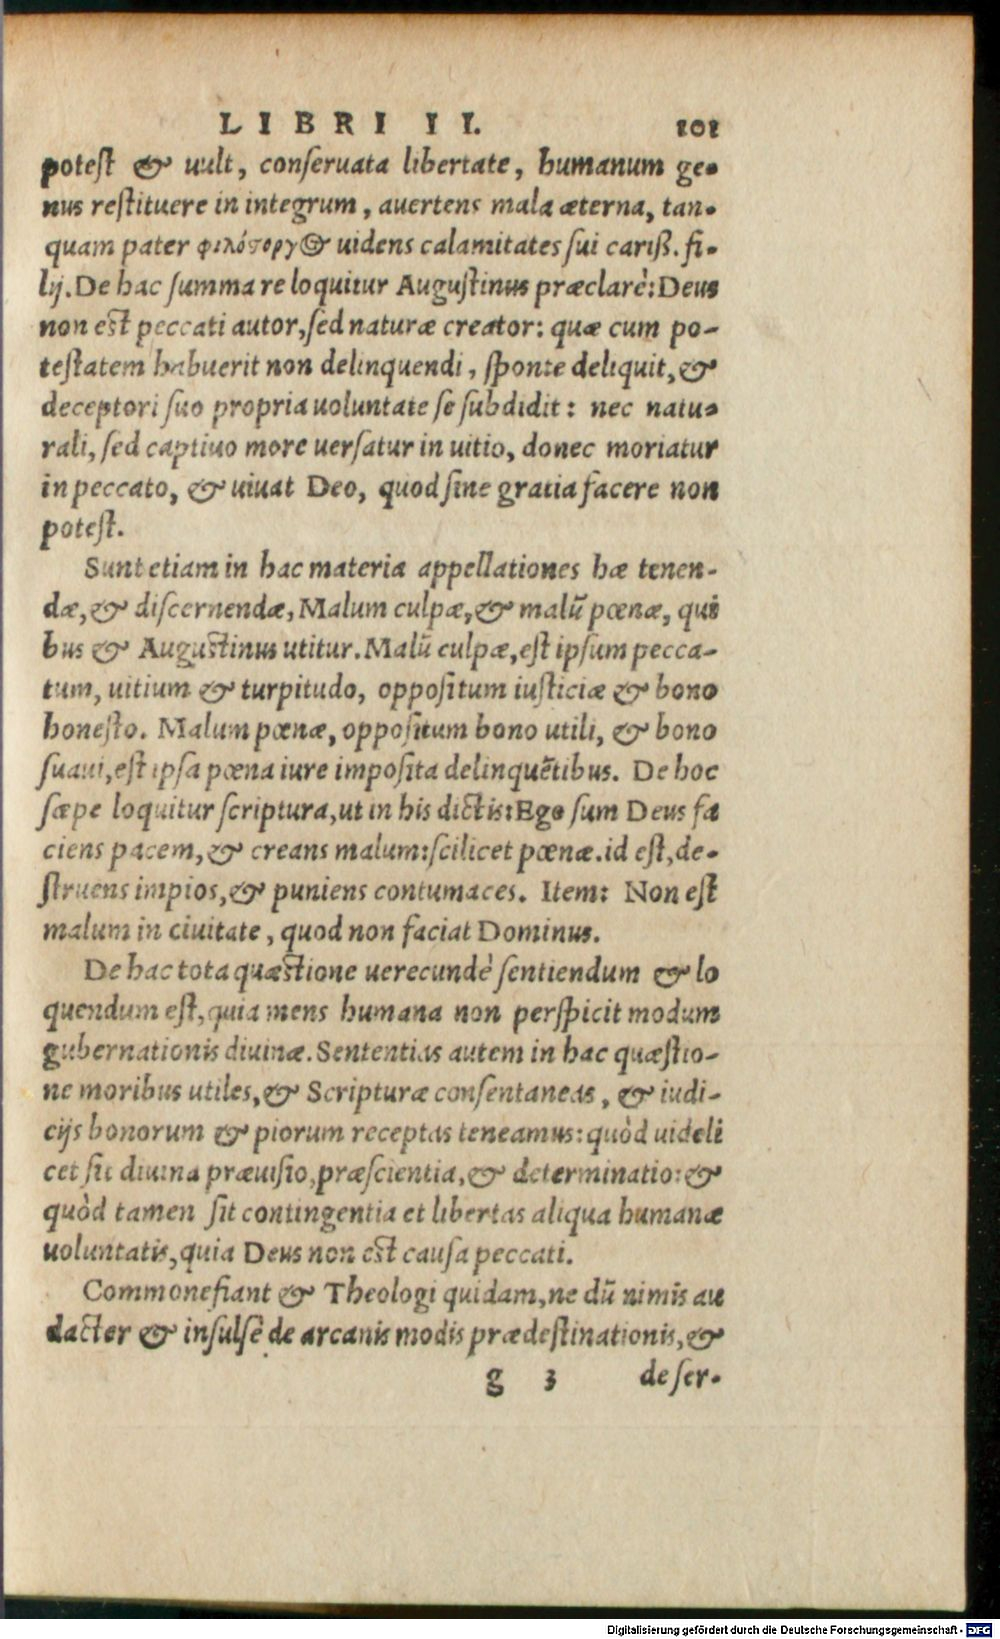 LIBRI II. 101
potest & uult, conseruata libertate, humanum ge-
nus restituere in integrum, auertens mala æterna, tan-
quam pater φιλόϛοργ&isin; uidens calamitates sui cariß. fi-
lij. De hac summa re loquitur Augustinus præclarè: Deus
non est peccati autor, sed naturæ creator: quæ cum po-
testatem habuerit non delinquendi, sponte deliquit, &
deceptori suo propria uoluntate se subdidit: nec natu-
rali, sed captiuo more uersatur in uitio, donec moriatur
in peccato, & uiuat Deo, quod sine gratia facere non
potest.
Sunt etiam in hac materia appellationes hæ tenen-
dæ, & discernendæ, Malum culpæ, & malũ pœnæ, qui
bus & Augustinus utitur. Malũ culpæ, est ipsum pecca-
tum, uitium & turpitudo, oppositum iusticiæ & bono
honesto. Malum pœnæ, oppositum bono utili, & bono
suaui, est ipsa pœna iure imposita delinquẽtibus. De hoc
sæpe loquitur scriptura, ut in his dictis: Ego sum Deus fa
ciens pacem, & creans malum: scilicet pœnæ. id est, de-
struens impios, & puniens contumaces. Item: Non est
malum in ciuitate, quod non faciat Dominus.
De hac tota quæstione uerecundè sentiendum & lo
quendum est, quia mens humana non perspicit modum
gubernationis diuinæ. Sententias autem in hac quæstio-
ne moribus utiles, & Scripturæ consentaneas, & iudi-
cijs bonorum & piorum receptas teneamus: quòd uideli
cet sit diuina præuisio, præscientia, & determinatio: &
quòd tamen sit contingentia et libertas aliqua humanæ
uoluntatis, quia Deus non est causa peccati.
Commonefiant & Theologi quidam, ne dũ nimis au
dacter & insulsè de arcanis modis prædestinationis, &
g 3 de ser-
Digitalisierung gefördert durch die Deutsche Forschungsgemeinschaft - DFG